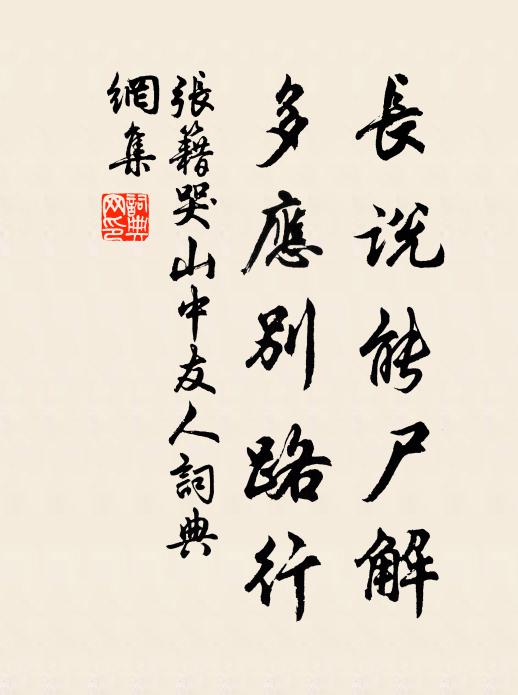 長说能尸解
多應别路行
張籍哭山中友人詞典
網集
詞典网印